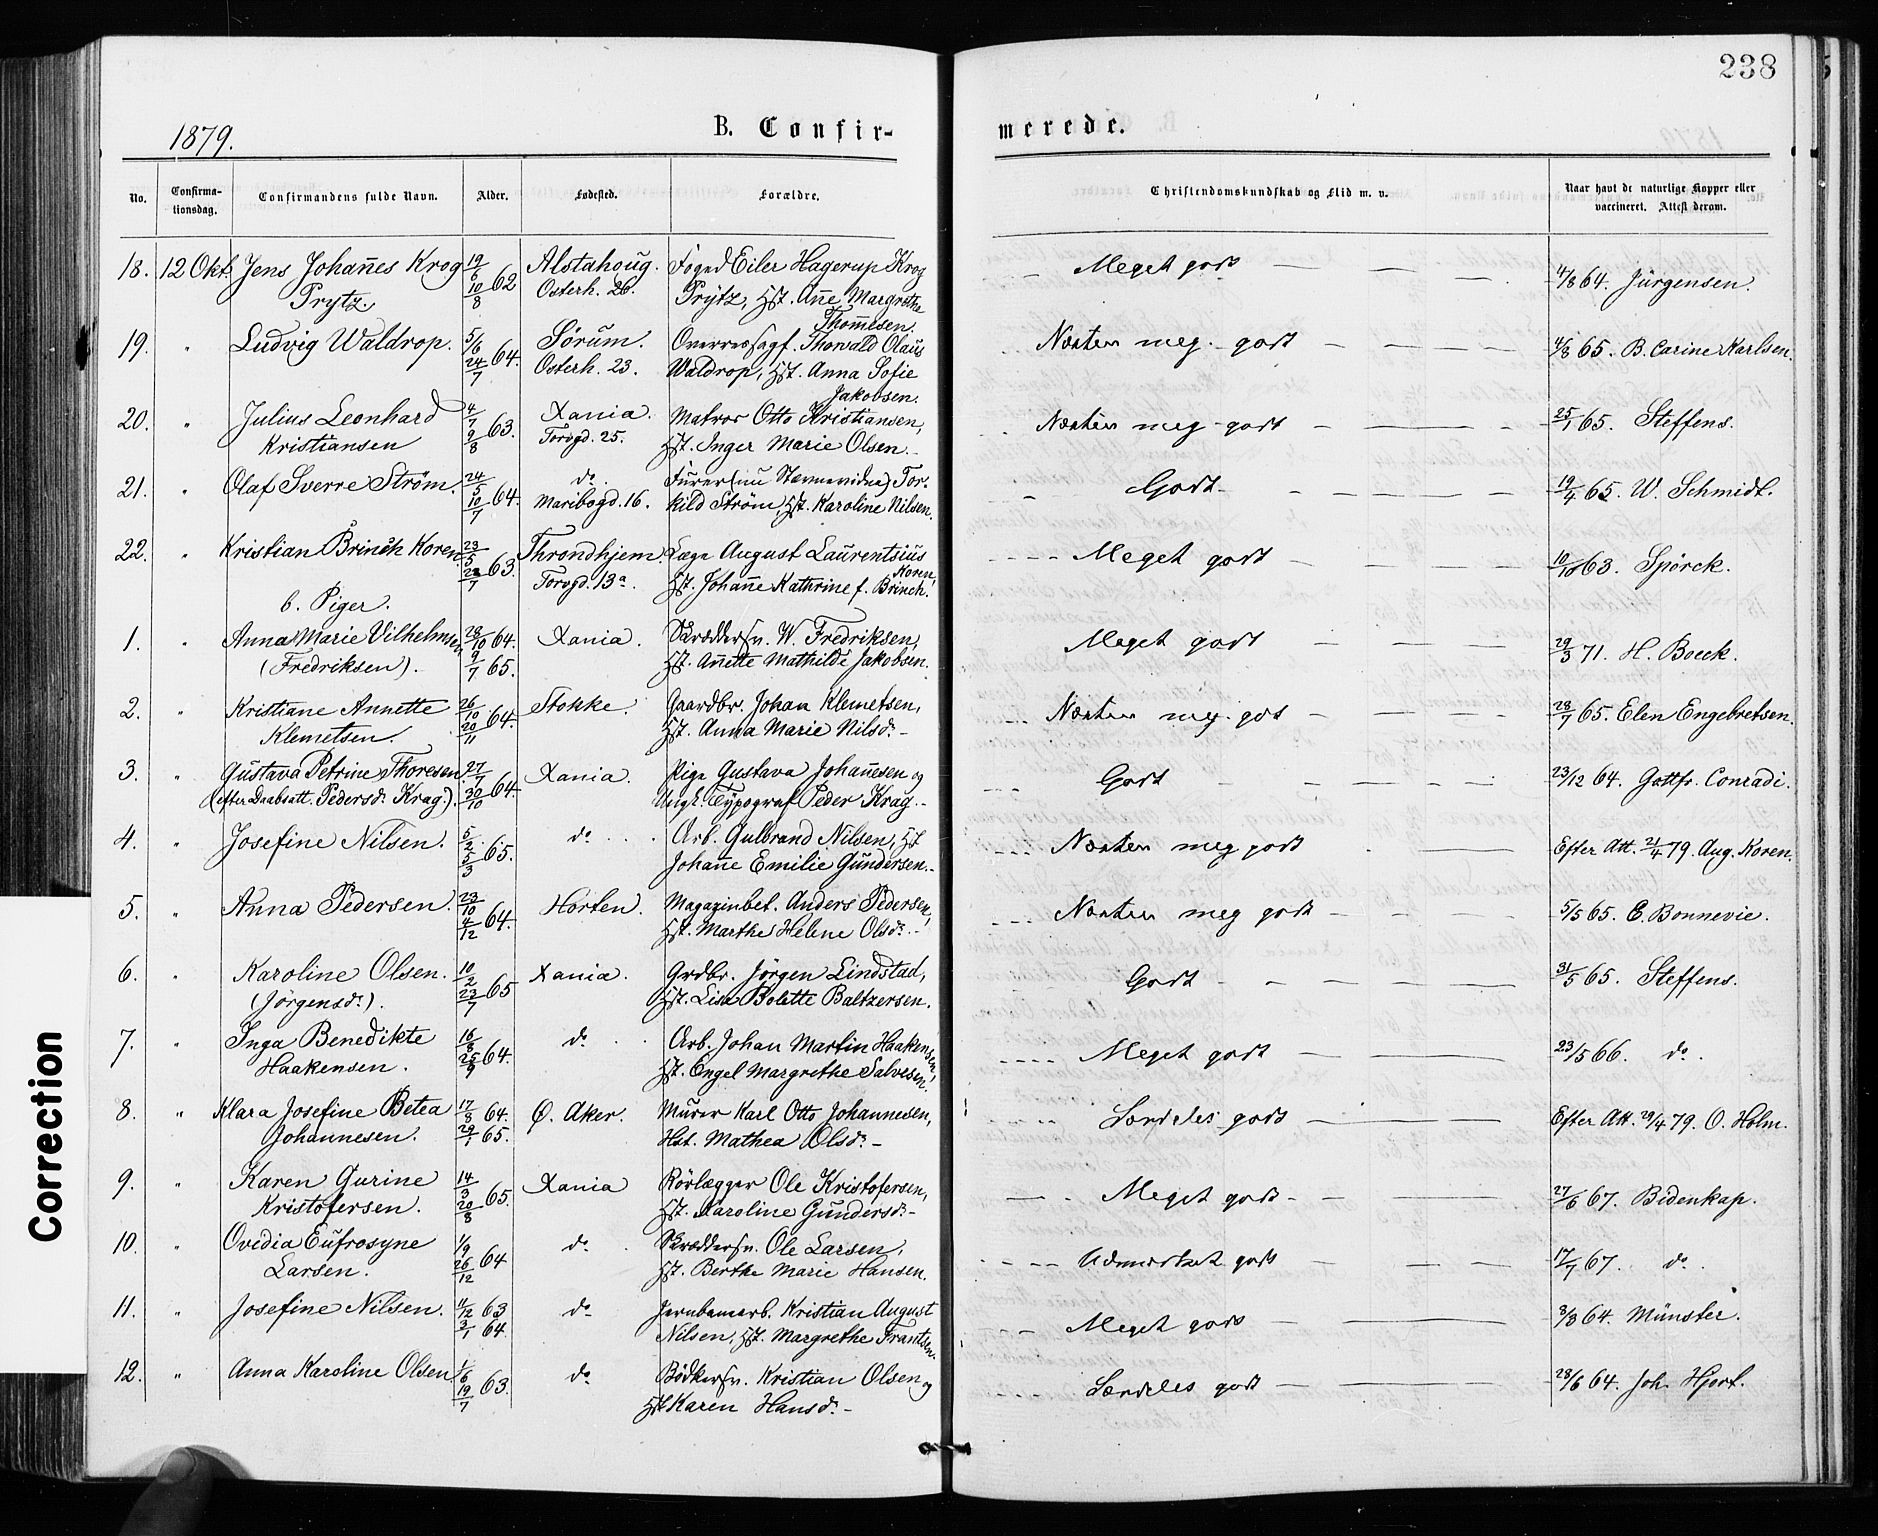 238
1879.
B. Confir-
merede.
No.
Confirma-
tionsdag.
Confirmandens fulde Navn.
Alder.
Fødested.
Forældre.
Christendomskundskab og Flid m. v.
Naar havt de naturlige Kopper eller
vaccineret. Attest derom.
18. 12 Okt. Jens Johañes Krog 19/6 62 Alstahoug. Foged Eiler Hagerup Krog Meget godt 4/8 64. Jürgensen.
Prytz. 10/8 Osterh. 26. Prÿtz, Hst. Añe Margrethe
Thom̃esen.
19. " Ludvig Waldrop. 5/6 64. Sørum. Overretssagf. Thorvald Olaus Næsten meg. godt 4/8 65. B. Carine Karlsen.
24/7 Osterh. 23. Waldrop, Hst. Anna Sofie
Jakobsen.
20. " Julius Leonhard 4/7 63. Xania. Matros Otto Kristiansen, Næsten meg. godt 25/1 65. Steffens.
Kristiansen 9/8 Torvgd. 25. Hst. Inger Marie Olsen.
21. " Olaf Sverre Strøm. 24/5 64. do. Furer (nu Stævnevidne) Tor- Godt 19/4 65. W. Schmidt.
10/7 Maribogd. 16. kild Strøm, Hst. Karoline Nilsen.
22. " Kristian Brinch Koren. 23/5 63. Throndhjem. Læge August Laurentsius Meget godt 10/10 63. Spörck.
23/7 Torvgd. 13a. Koren,
Hst. Johañe Kathrine f. Brinch.
b. Piger.
1. " Anna Marie Vilhelmsen 28/10 64. Xania. Skræddersv. W. Fredriksen, Meget godt 29/3 71. H. Boeck.
(Fredriksen). 9/7 65. Hst. Añette Mathilde Jakobsen.
2. " Kristiane Annette 26/10 64. Stokke. Gaardbr. Johan Klemetsen, Næsten meg. godt 28/7 65. Elen Engebretsen.
Klemetsen. 20/11 Hst. Anna Marie Nilsd.
3. " Gustava Petrine Thoresen 27/7 64. Xania. Pige Gustava Johañesen og Godt 23/12 64. Gottfr. Conradi.
(efter Daabsatt. Pedersd. Krag.). 30/10 Ungk. Typograf Peder Krag.
4. " Josefine Nilsen. 5/2 65. do. Arb. Gulbrand Nilsen, Hst Næsten meg godt Efter Att. 2/4 79. Aug. Koren.
5/3 Johañe Emilie Gundersen.
5. " Anna Pedersen. 23/10 64. Horten. Magazinbet. Anders Pedersen, Næsten meg godt 5/5 65. E. Bonnevie.
4/12 Hst. Marthe Helene Olsd.
6. " Karoline Olsen. 10/2 65 Xania. Grdbr. Jörgen Lindstad, Godt 31/5 65. Steffens.
(Jörgensd.). 23/7 Hst. Lisa Bolette Baltzersen.
7. " Inga Benedikte 16/8 64. do. Arb. Johan Martin Haakensen, Meget godt 23/5 66. do.
Haakensen. 25/9 Hst. Engel Margrethe Salvesen.
8. " Klara Josefine Betea 17/8 64. Ø. Aker. Murer Karl Otto Johannesen, Særdeles godt Efter Att. 29/4 79. O. Holm.
Johannesen. 29/1 65. Hst. Mathea Olsd.
9. " Karen Gurine 14/3 65. Xania Rörlægger Ole Kristofersen, Meget godt 27/6 67. Bidenkap.
Kristofersen. 20/8 Hst. Karoline Gundersd.
10. " Ovidia Eufrosyne 1/9 64 do. Skræddersv. Ole Larsen, Udmærket godt 17/7 67. do.
Larsen. 26/12 Hst. Berthe Marie Hansen.
11. " Josefine Nilsen. 11/12 63 do Jernbanearb. Kristian August Meget godt 3/8 64. Münster.
3/1 64. Nilsen, Hst. Margrethe Frantsen.
12. " Anna Karoline Olsen 1/6 63. do Bødkersv. Kristian Olsen og Særdeles godt 28/6 64. Joh. Hjort.
19/7 Hst Karen Hansd.
Correction